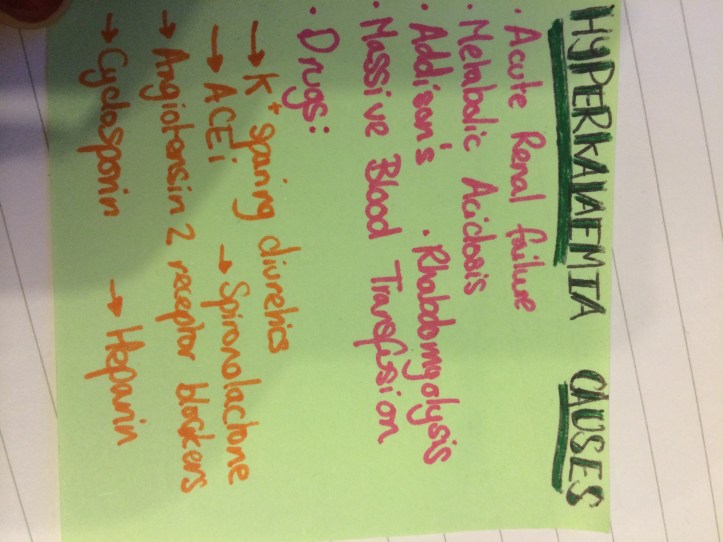 HYPERKALAEMIA CAUSES
· Acute Renal failure
· Metabolic Acidosis
· Addison's · Rhabdomyolysis
· Massive Blood Transfusion
· Drugs:
→ K+ sparing diuretics
→ ACEi → Spironolactone
→ Angiotensin 2 receptor blockers
→ Cyclosporin → Heparin